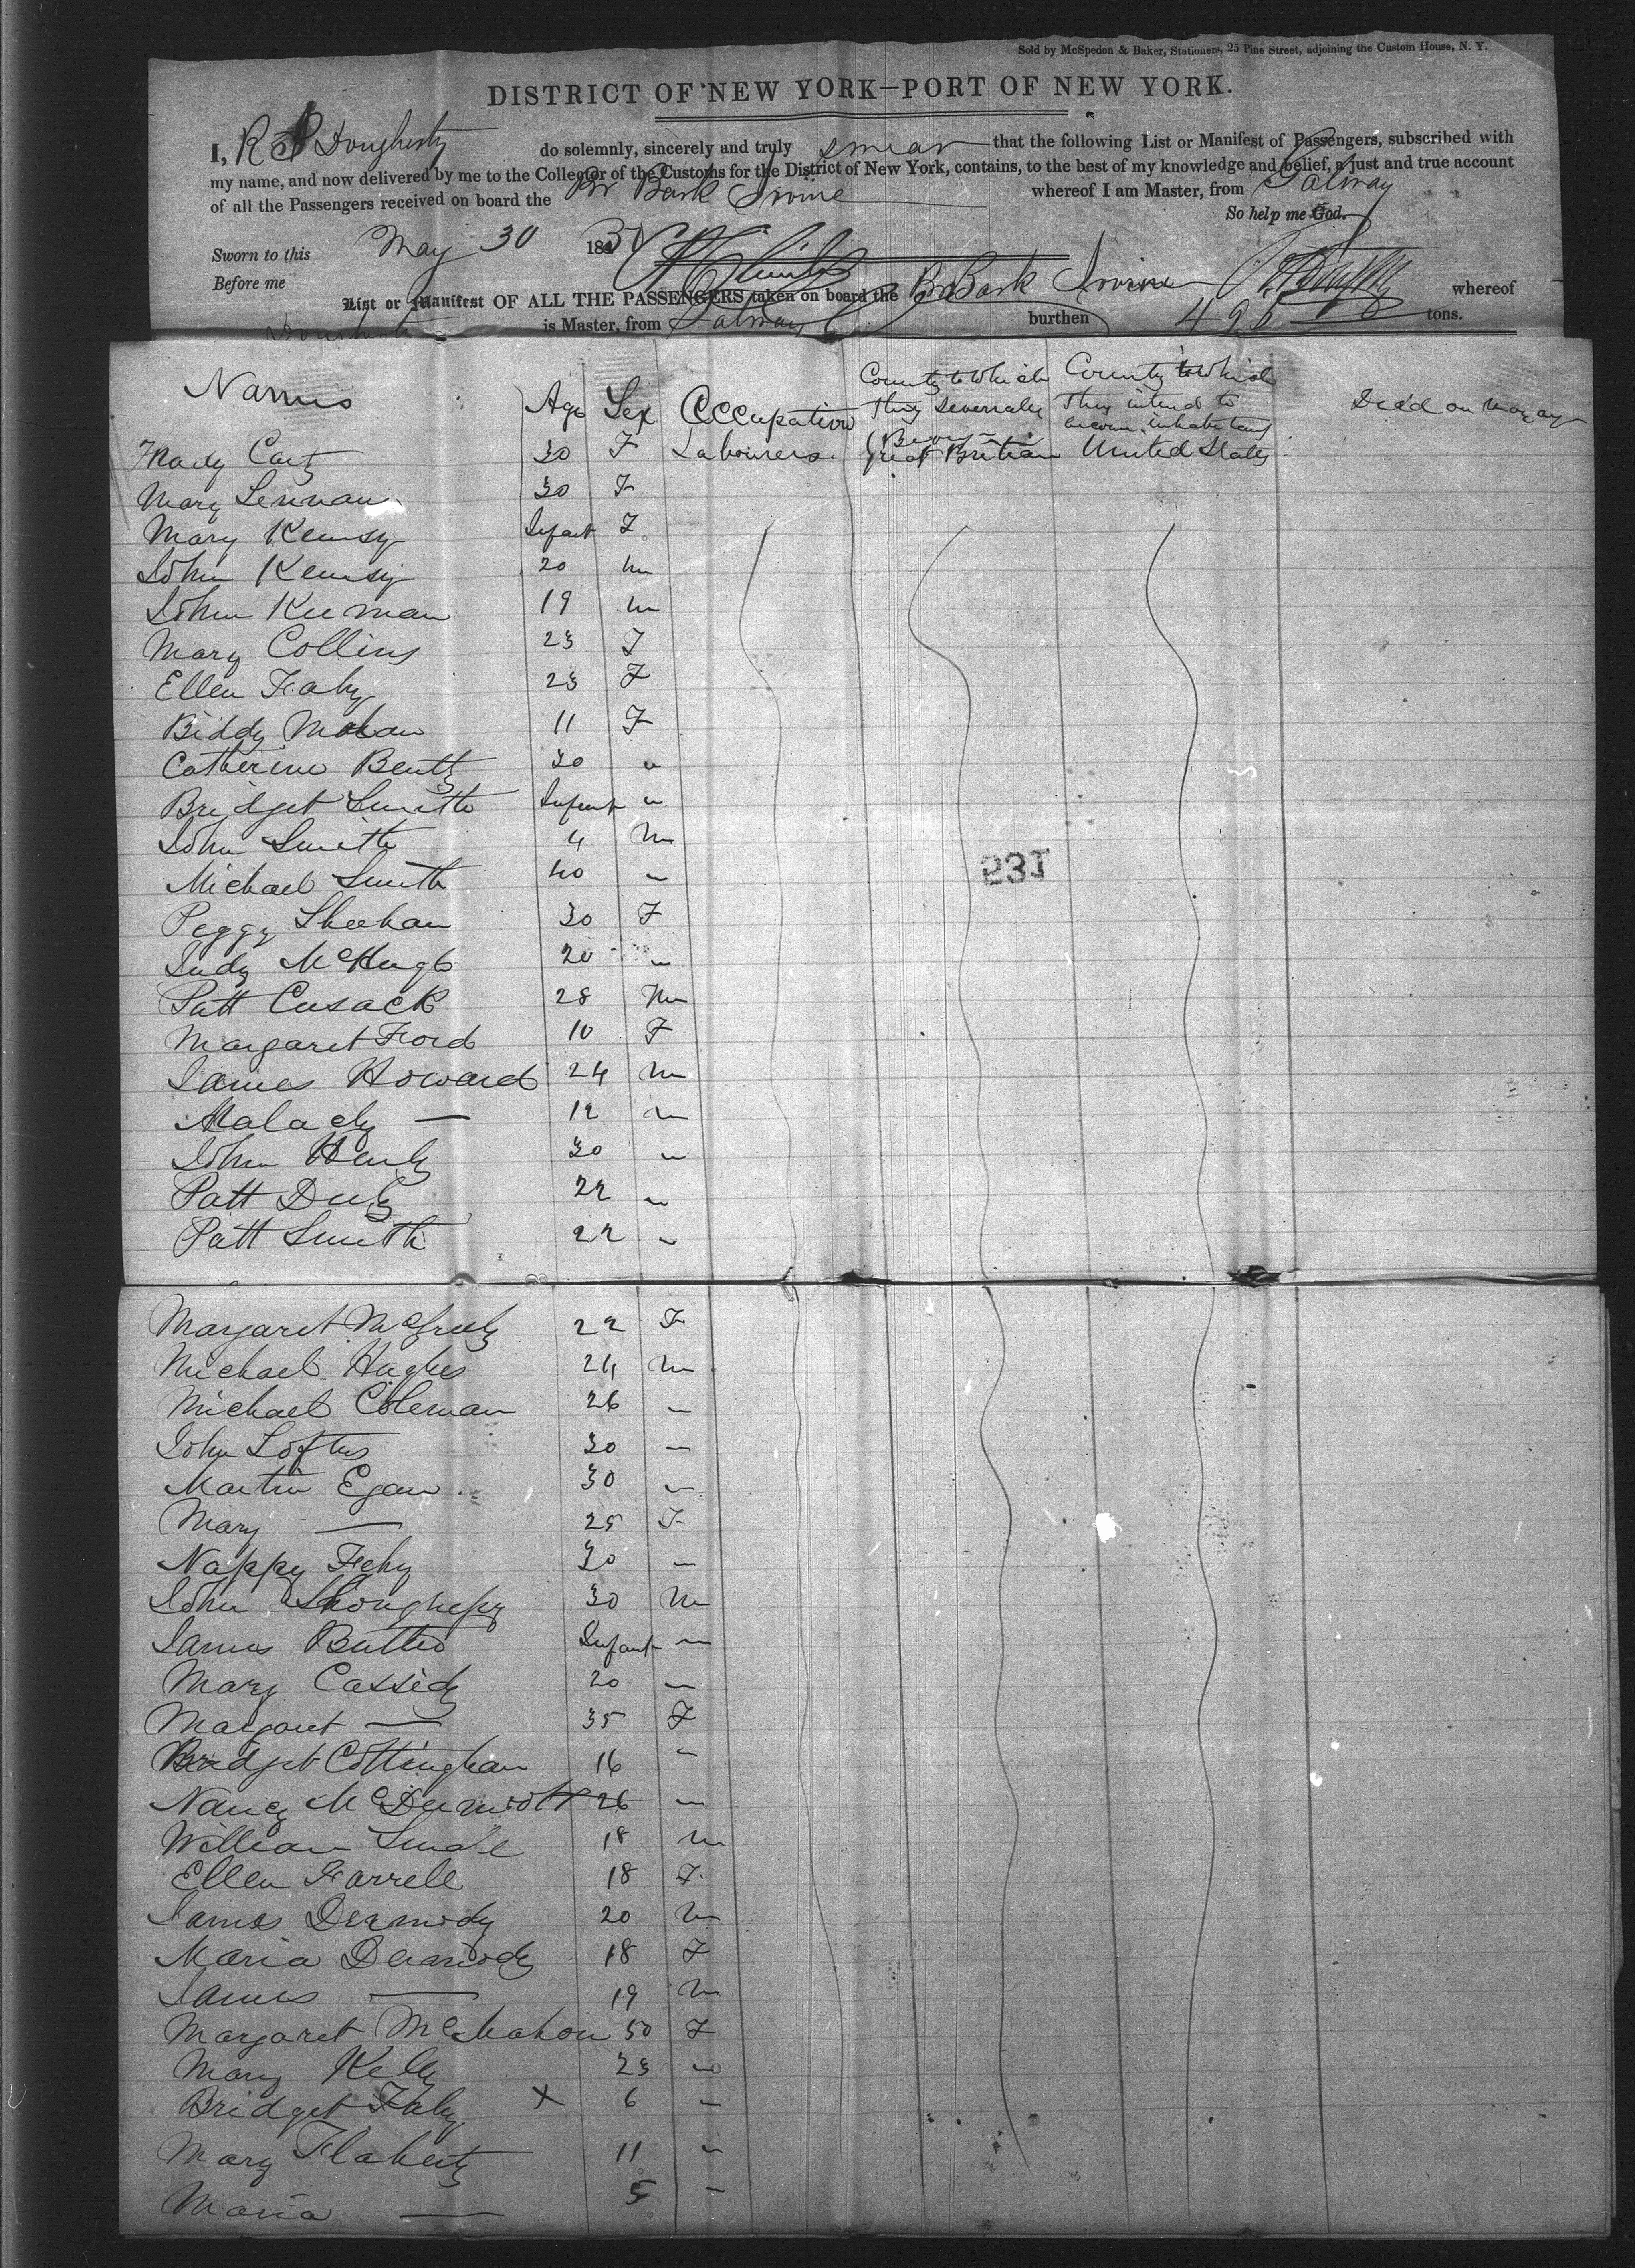 Sold by McSpedon & Baker, Stationers, 25 Pine Street, adjoining the Custom House, N. Y.
DISTRICT OF NEW YORK—PORT OF NEW YORK.
I, Dougherty do solemnly, sincerely and truly swear that the following List or Manifest of Passengers, subscribed with
my name, and now delivered by me to the Collector of the Customs for the District of New York, contains, to the best of my knowledge and belief, a just and true account
of all the Passengers received on board the Br Bark Irvine whereof I am Master, from Galway
So help me God.
Sworn to this May 30 18
Before me
List or Manifest OF ALL THE PASSENGERS taken on board the Br Bark Irvine whereof
Dougherty is Master, from Galway burthen 495 tons.
Names Age Sex Occupation County to which they severally Belong County to which they intend to become inhabitants Died on voyage
Mary 30 F Labourers Great Britian United States
Mary Lennan 30 F
Mary Infant F
John 20 m
John 19 m
Mary Collins 23 F
Ellen Fahy 23 F
Biddy 11 F
Catherine 30 "
Bridget Smith Infant "
John Smith 4 m
Michael Smith 40 "
Peggy Sheehan 30 F
Judy McHugh 20 "
Patt Cusack 28 m
Margaret Ford 10 F
James Howard 24 m
Malachy — 12 m
John Henly 30 "
Patt 22 "
Patt Smith 22 "
Margaret 22 F
Michael Hughes 24 m
Michael Coleman 26 "
John Loftus 30 "
Martin Egan 30 "
Mary — 25 F
Nappy Fehy 30 "
John 30 m
James Butler Infant "
Mary Cassidy 20 "
Margaret — 35 F
Bridget Cottingham 16 "
Nancy McDermott 26 "
William 18 m
Ellen Farrell 18 F
James Dermody 20 m
Maria Dermody 18 F
James — 19 m
Margaret McMahon 50 F
Mary Kelly 23 "
Bridget Fahy X 6 "
Mary Flaherty 11 "
Maria — 5 "